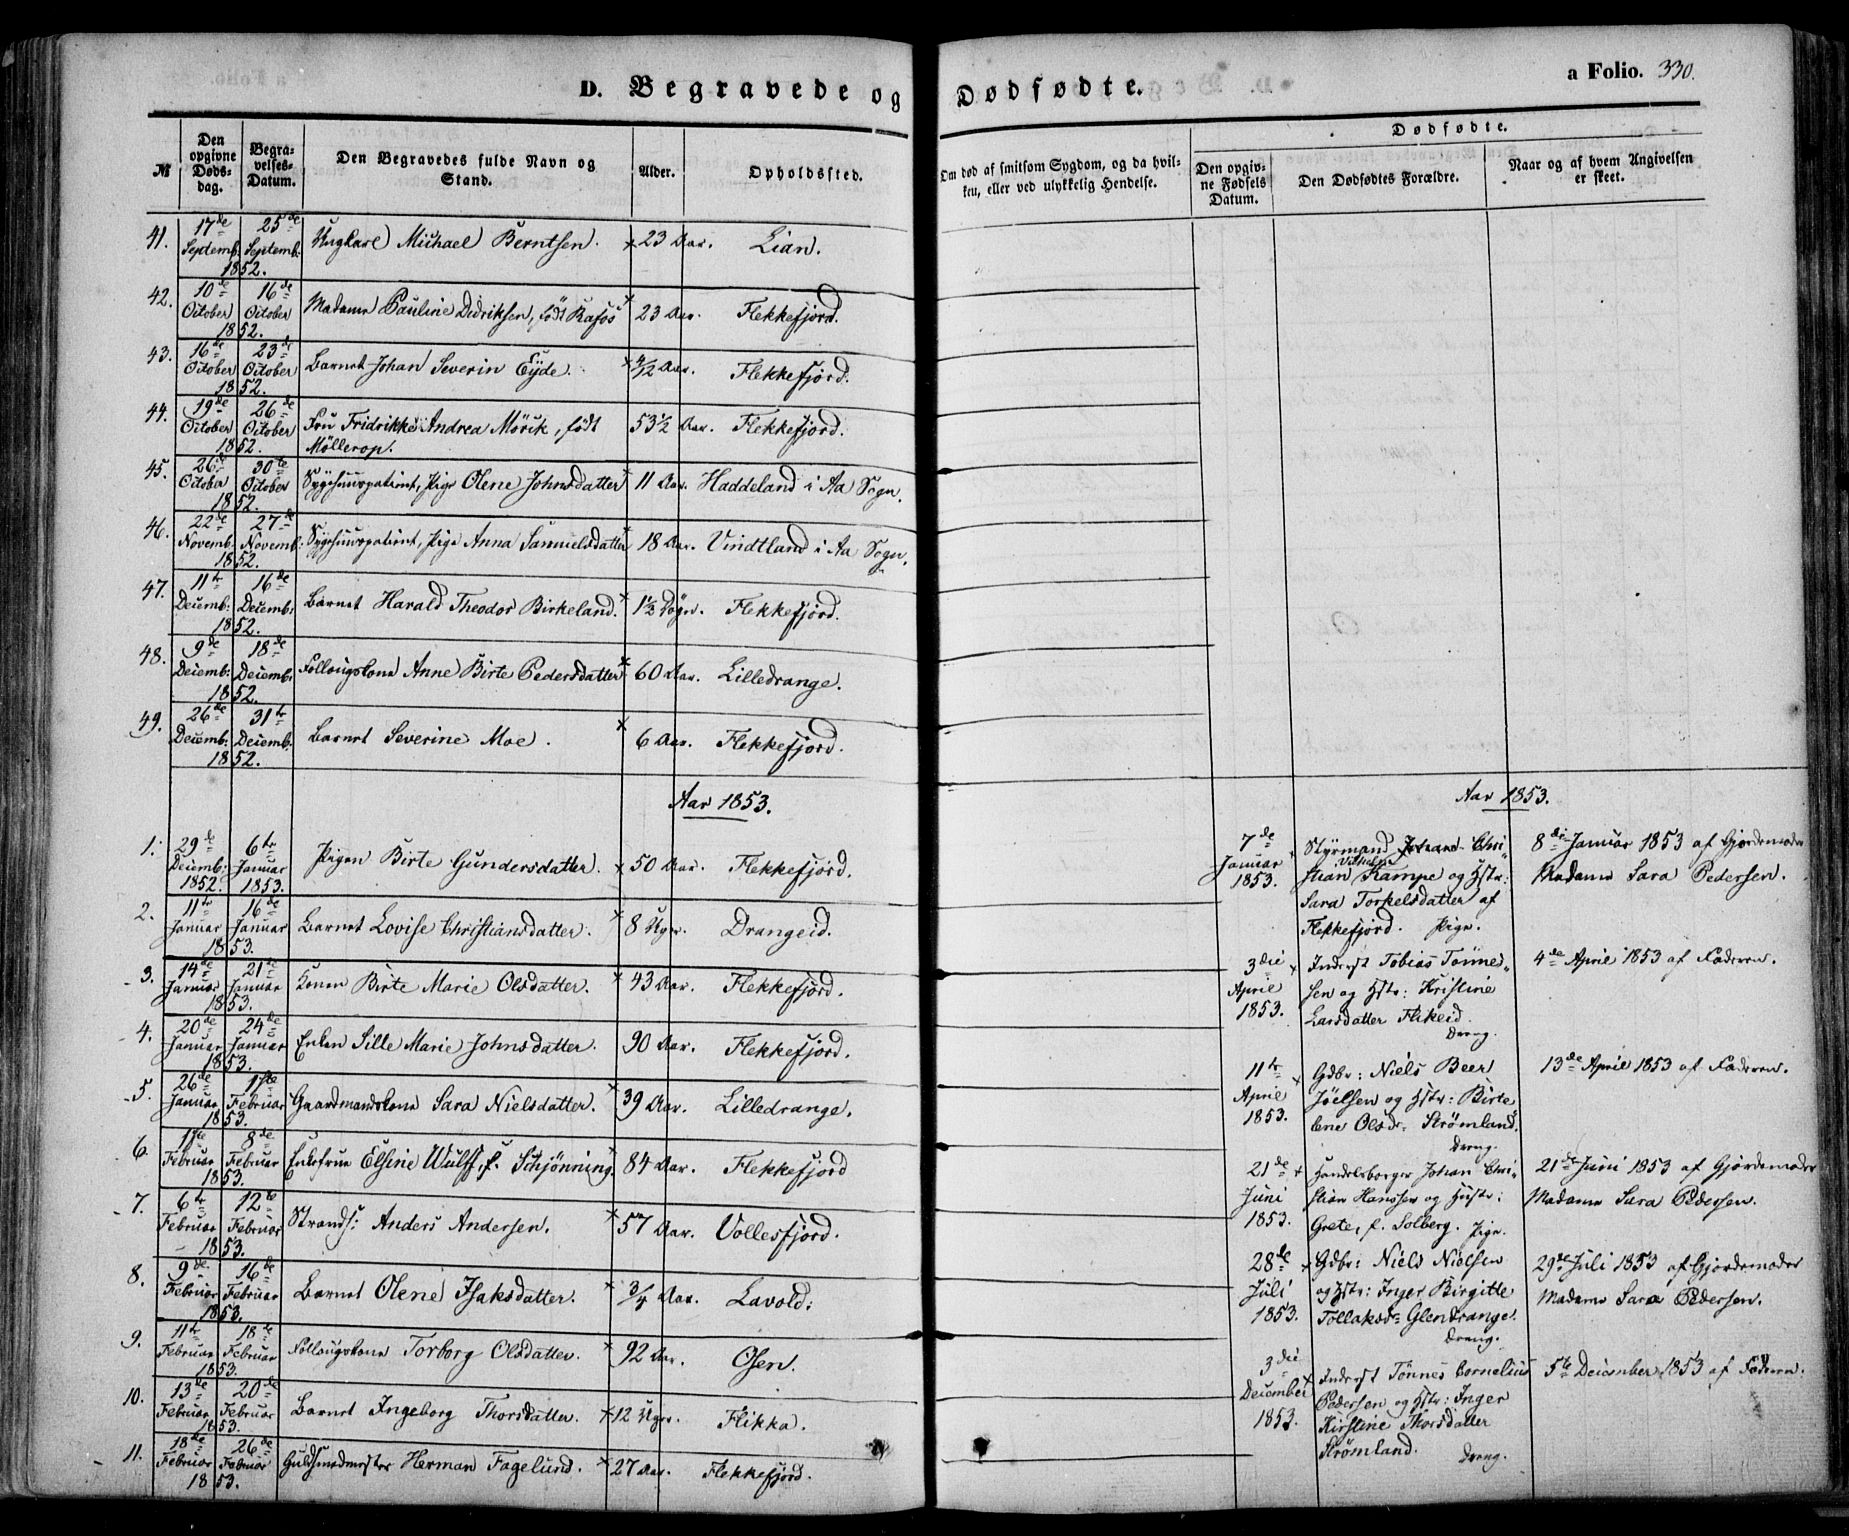 D. Begravede og Dødfødte.
a Folio. 330.
№
Den opgivne Døds-dag.
Begra-velses-Datum.
Den Begravedes fulde Navn og Stand.
Alder.
Opholdssted.
Om død af smitsom Sygdom, og da hvil-ken, eller ved ulykkelig Hendelse.
Dødfødte.
Den opgiv-ne Fødsels Datum.
Den Dødfødtes Forældre.
Naar og af hvem Angivelsen er skeet.
41. 17de Septemb: 1852. 25de Septemb: Ungkarl Michael Berntsen. 23 Aar. Lian.
42. 10de October 1852. 16de October Madame Pauline Didriksen, födt Rafos 23 Aar. Flekkefjord.
43. 16de October 1852. 23de October Barnet Johan Severin Eyde. 4/12 Aar. Flekkefjord.
44. 19de October 1852. 26de October Fru Fridrikke Andrea Mörik, födt Möllerop. 53 1/2 Aar. Flekkefjord.
45. 26de October 1852. 30te October Sygehuuspatient, Pige Olene Johnsdatter 11 Aar. Haddeland i Aa Sogn.
46. 22de Novemb: 1852. 27de Novemb: Sygehuuspatient, Pige Anna Samuelsdatter 18 Aar. Vindtland i Aa Sogn.
47. 11te Decemb: 1852. 16de Decemb: Barnet Harald Theodor Birkeland. 1 1/2 Dögn. Flekkefjord.
48. 9de Decemb: 1852. 18de Decemb: Follaugskone Anne Birte Pedersdatter 60 Aar. Lilledrange.
49. 26de Decemb: 1852. 31te Decemb: Barnet Severine Moe. 6 Aar. Flekkefjord.
Aar 1853.
1. 29de Decemb: 1852. 6te Januar 1853. Pigen Birte Gundersdatter. 50 Aar. Flekkefjord.
2. 11te Januar 1853. 16de Januar Barnet Lovise Christiansdatter. 8 Uger. Drangeid.
3. 14de Januar 1853. 21de Januar Konen Birte Marie Olsdatter. 43 Aar. Flekkefjord.
4. 20de Januar 1853. 24de Januar Enken Sille Marie Johnsdatter. 90 Aar. Flekkefjord.
5. 26de Januar 1853. 1ste Februar Gaardmandskone Sara Nielsdatter. 39 Aar. Lilledrange.
6. 1ste Februar 1853. 8de Februar Enkefrue Elsine Wulff, f. Schjönning. 84 Aar. Flekkefjord
7. 6te Februar 1853. 12te Februar Strands: Anders Andersen. 57 Aar. Vollesfjord.
8. 9de Februar 1853. 16de Februar Barnet Olene Isaksdatter. 3/4 Aar. Lavold:
9. 11te Februar 1853. 18de Februar Follaugskone Torborg Olsdatter. 92 Aar. Osen.
10. 13de Februar 1853. 20de Februar Barnet Ingeborg Thorsdatter. 12 Uger. Flikka.
11. 18de Februar 1853. 26de Februar Guldsmedmester Herman Fagelund. 27 Aar. Flekkefjord.
Aar 1853.
7de Januar 1853. Styrmand Johan Chri-
stian Vilhelm Kampe og Hstr:
Sara Torkelsdatter af
Flekkefjord. Pige.
8de Januar 1853 af Gjordemoder
Madame Sara Pedersen.
3die April 1853. Inderst Tobias Tönnes-
sen og Hstr: Kristine
Larsdatter Flikeid.
Dreng.
4de April 1853 af Faderen.
11te April 1853. Gdbr: Niels Beer
Jöelsen og Hstr: Birte
Lene Olsdr Strömland.
Dreng.
13de April 1853 af Faderen.
21de Juni 1853. Handelsborger Johan Chri-
stian Hanssen og Hustr:
Grete, f. Solberg. Pige.
21de Juni 1853 af Gjordemoder
Madame Sara Pedersen.
28de Juli 1853. Gdbr: Niels Nielsen
og Hstr: Inger Birgitte
Tollaksdr Glendrange.
Dreng.
29de Juli 1853 af Gjordemoder
Madame Sara Pedersen.
3die December 1853. Inderst Tönnes Cornelius
Pedersen og Hstr: Inger
Kirstine Thorsdatter
Strömland. Dreng.
5te December 1853 af Faderen.